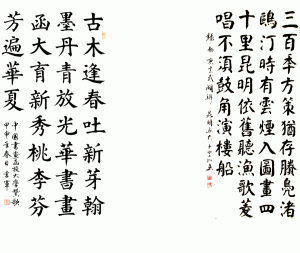 三百季方策猶存勝凫渚
鷗汀時有雲煙入圖畫四
十里昆明依舊聽漁歌菱
唱不須鼓角演樓船
古木逢春吐新芽翰
墨丹青放光華書畫
函大育新秀桃李芬
芳遍華夏
中國書畫函授大學贊歌
甲申年春日